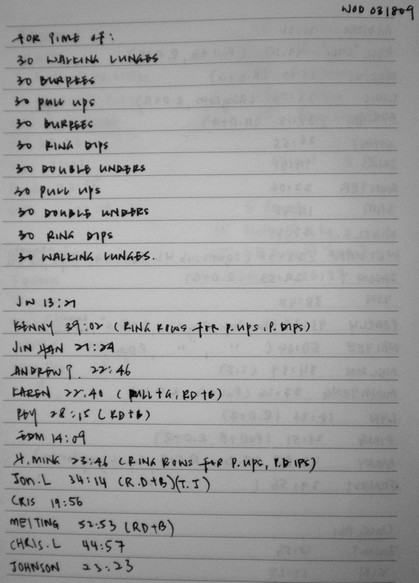 WOD 031809
FOR TIME OF:
30 WALKING LUNGES
30 BURPEES
30 PULL UPS
30 BURPEES
30 RING DIPS
30 DOUBLE UNDERS
30 PULL UPS
30 DOUBLE UNDERS
30 RING DIPS
30 WALKING LUNGES.
JW 13:21
KENNY 39:02 (RING ROWS FOR P.UPS, P.DIPS)
JIN HAN 21:29
ANDREW 22:46
KAREN 22.40 (PULL+G, RD+B)
28:15 (RD+B)
EDM 14:09
H.MING 23:46 (RING ROWS FOR P.UPS, P.DIPS)
JON.L 34:14 (R.D+B)(T.J)
CRIS 19:56
MEITING 52:53 (RD+B)
CHRIS.L 44:57
JOHNSON 23:23